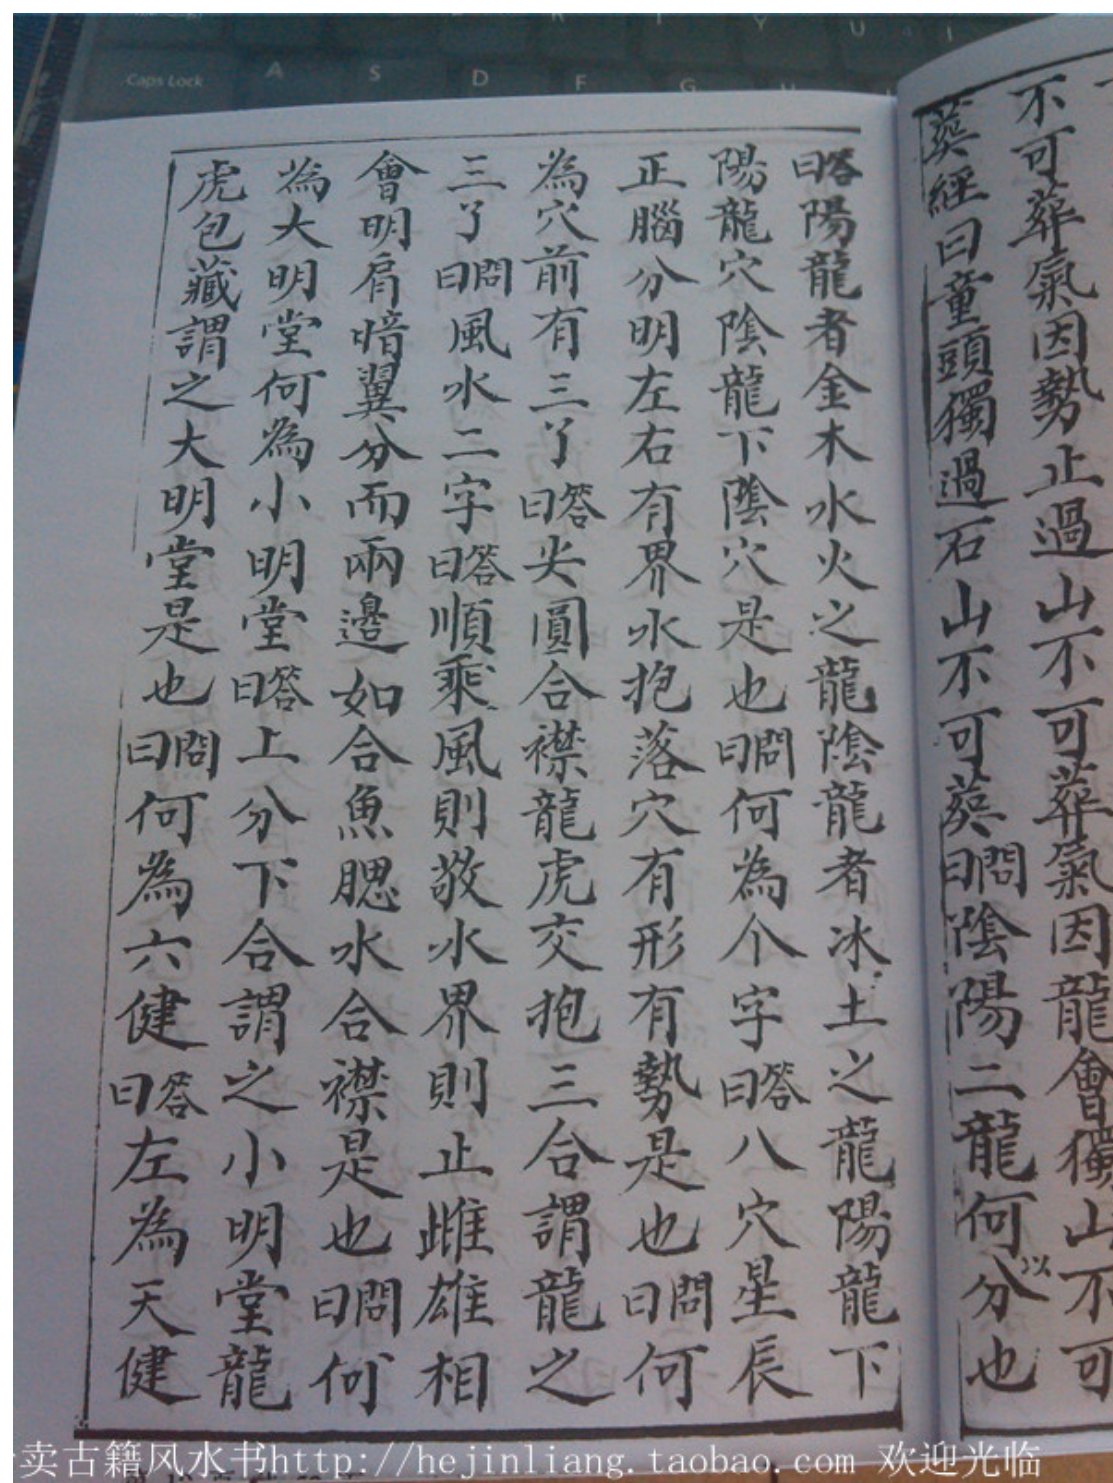 不可葬氣因勢止過山不可葬氣因龍會獨山不可
葬經曰童頭獨過石山不可葬問曰陰陽二龍何以分也
答曰陽龍者金木水火之龍陰龍者冰土之龍陽龍下
陽龍穴陰龍下陰穴是也問曰何為个字答曰八穴星辰
正腦分明左右有界水抱落穴有形有勢是也問曰何
為穴前有三丫答曰尖圓合襟龍虎交抱三合謂龍之
三丫問曰風水二字答曰順乘風則敬水界則止雌雄相
會明肩暗翼分而兩邊如合魚腮水合襟是也問曰何
為大明堂何為小明堂答曰上分下合謂之小明堂龍
虎包藏謂之大明堂是也問曰何為六健答曰左為天健
Caps Lock A S D F G
Y U I
卖古籍风水书http://hejinliang.taobao.com 欢迎光临